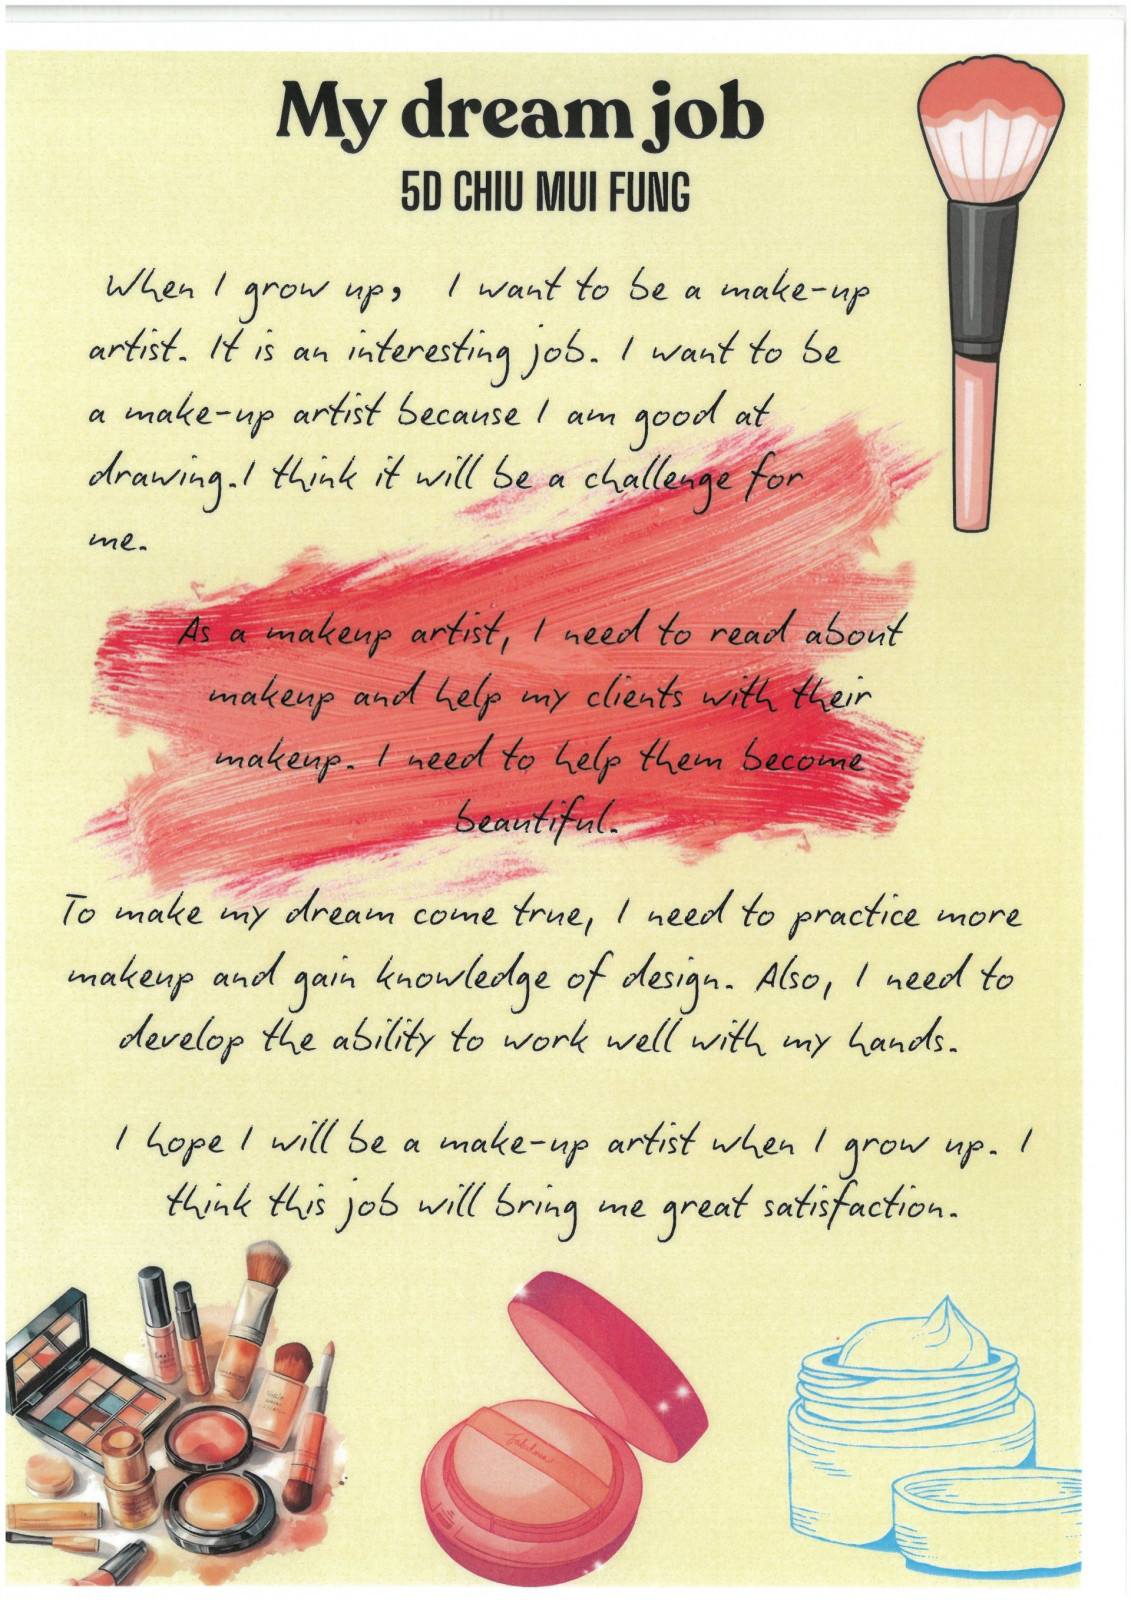 My dream job
5D CHIU MUI FUNG
When I grow up, I want to be a make-up
artist. It is an interesting job. I want to be
a make-up artist because I am good at
drawing.I think it will be a challenge for
me.
As a makeup artist, I need to read about
makeup and help my clients with their
makeup. I need to help them become
beautiful.
To make my dream come true, I need to practice more
makeup and gain knowledge of design. Also, I need to
develop the ability to work well with my hands.
I hope I will be a make-up artist when I grow up. I
think this job will bring me great satisfaction.